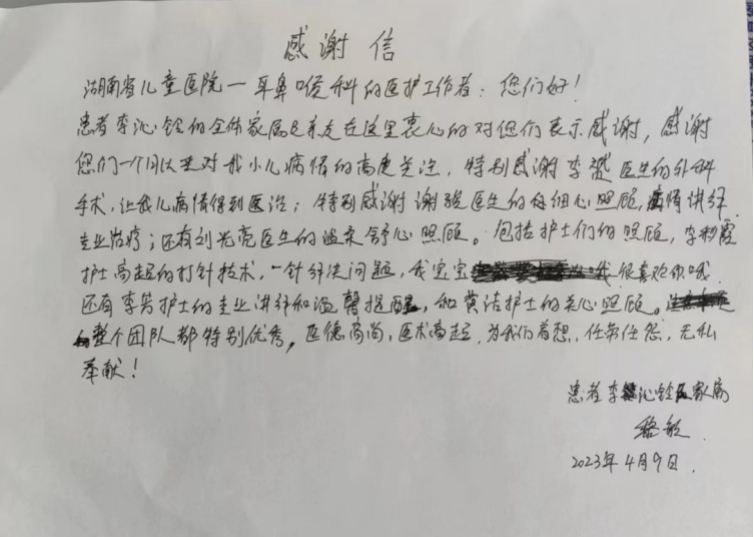 感谢信
湖南省儿童医院一耳鼻喉科的医护工作者：您们好！
患者李沁铨的全体家属及亲友在这里衷心的对您们表示感谢，感谢
您们一个月以来对我小儿病情的高度关注，特别感谢李赟医生的外科
手术，让我儿病情得到医治；特别感谢谢强医生的仔细心照顾，病情讲解
专业治疗；还有刘光亮医生的温柔舒心照顾。包括护士们的照顾，李彩霞
护士高超的打针技术，一针解决问题，我宝宝很喜欢你哦
还有李芳护士的专业讲解和温馨提醒，和黄洁护士的关心照顾。
整个团队都特别优秀，医德高尚，医术高超，为我们着想，任劳任怨，无私
奉献！
患者李沁铨家属
黎敏
2023年4月9日